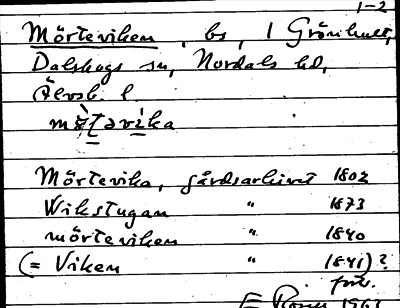 1-2
Mörteviken, bs, 1 Grönhult,
Dalskogs sn, Nordals hd,
Älvsb. l.
Mörtevika, gårdsarkivet 1802
Wikstugan " 1873
mörteviken " 1840
(= Viken " 1841)?
1963